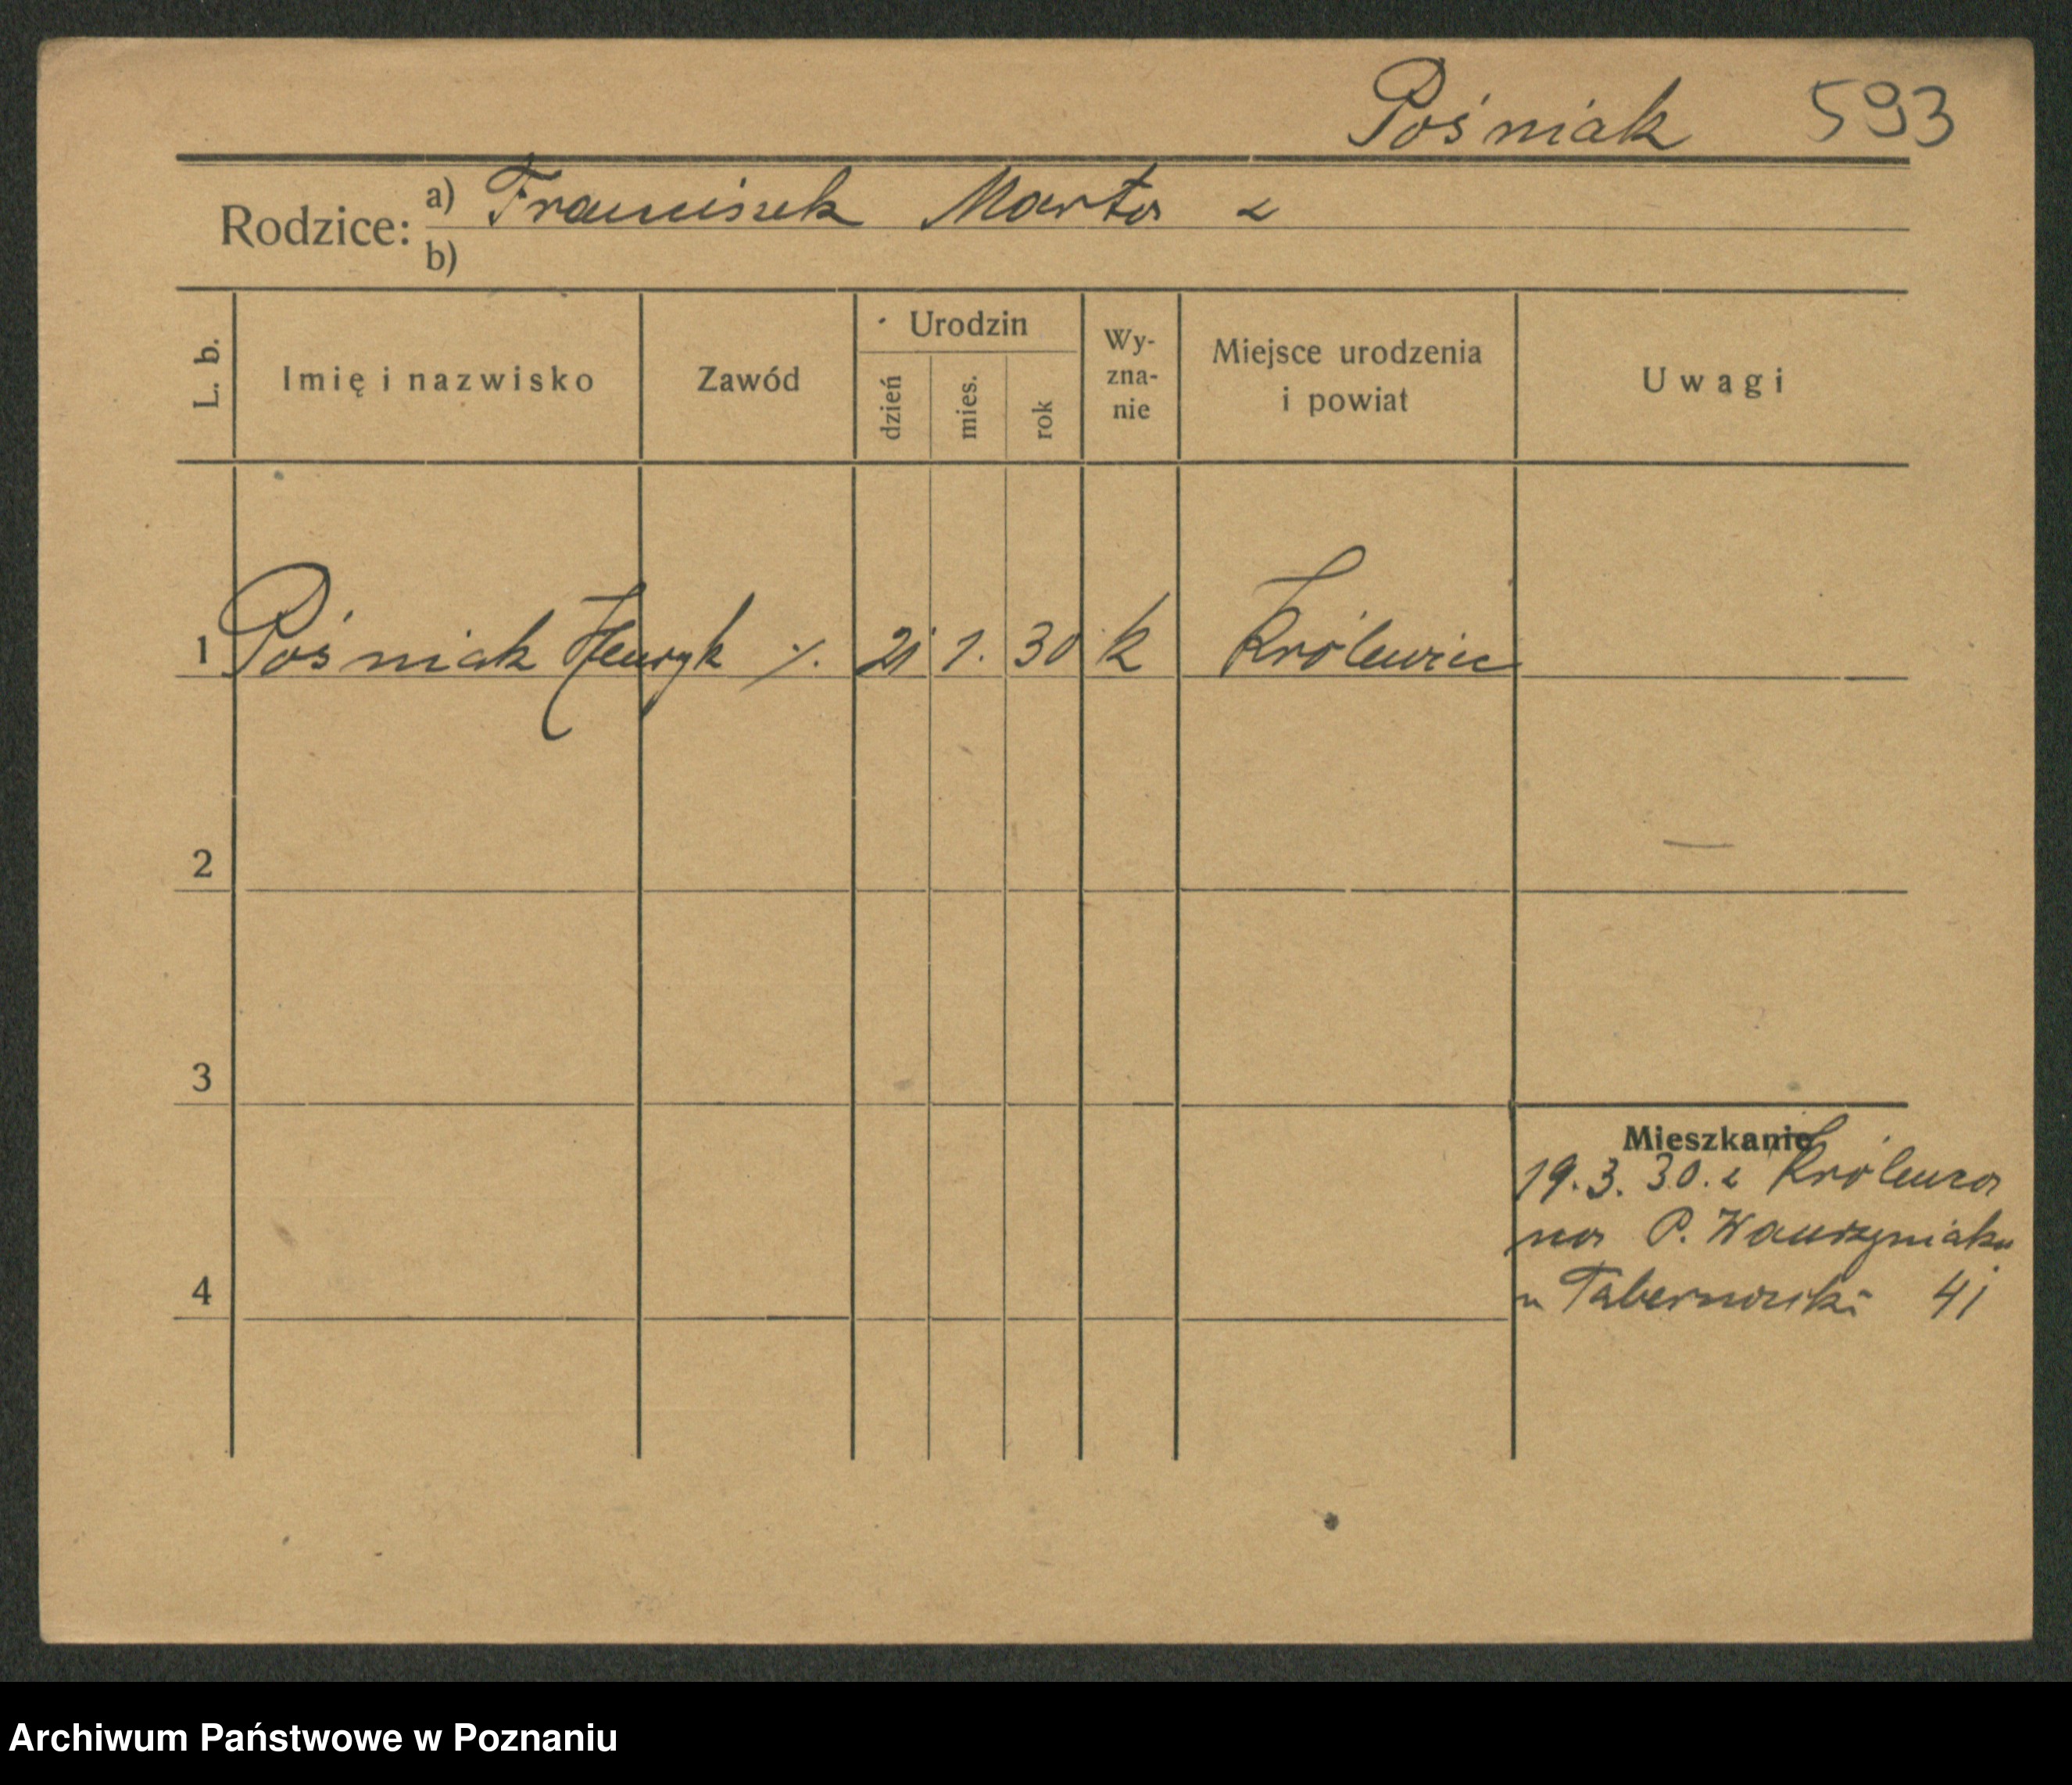 Pośniak 593
Rodzice: a) Franciszek Marta z
b)
L. b. Imię i nazwisko Zawód Urodzin dzień mies. rok Wy-zna-nie Miejsce urodzenia i powiat Uwagi
1 Pośniak Henryk ./. 21 1. 30 k Królewiec
2
3
Mieszkanie
19.3.30. z Królewca
na P. Wawrzyniaka
4
u Tabernacki 41
Archiwum Państwowe w Poznaniu